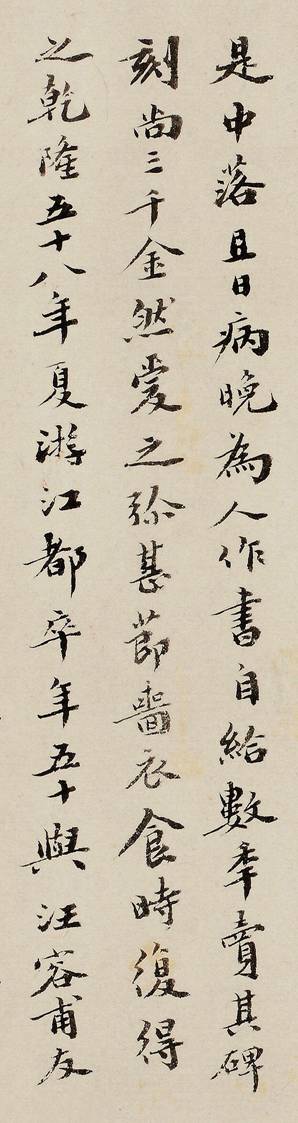 是中落且日病晚為人作書自給數年賣其碑
刻尚三千金然愛之弥甚節嗇衣食時復得
之乾隆五十八年夏游江都卒年五十與汪容甫友